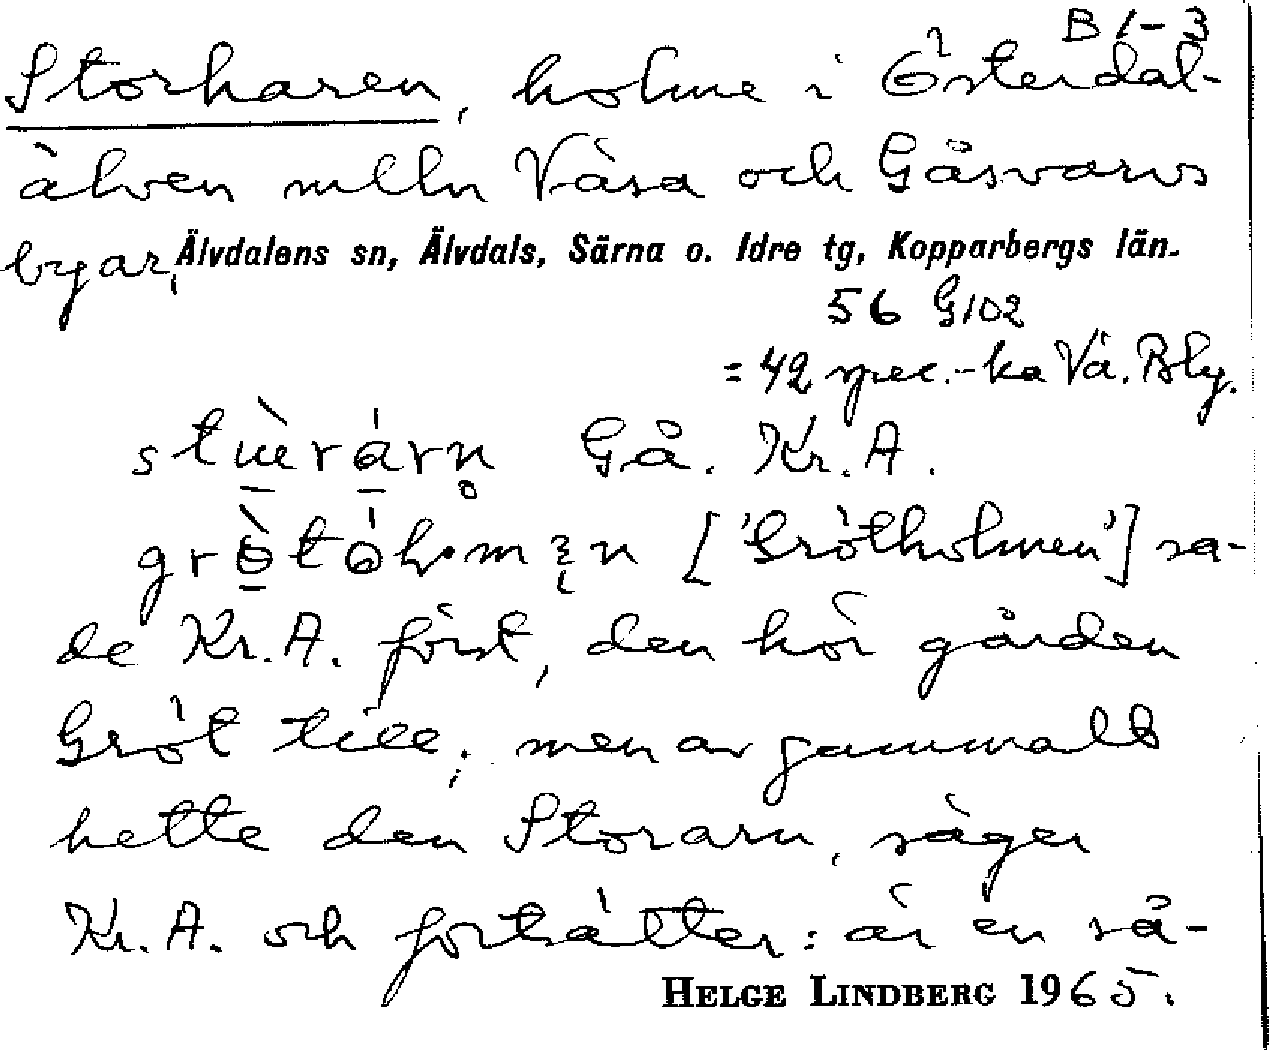 B 1-3
Storharen, holme i Österdal-
älven mlln Våsa och Gåsvarvs
byar, Älvdalens sn, Älvdals, Särna o. Idre tg, Kopparbergs län.
56 G102
= 42 spec.-ka Vå. Bly.
Gå. Kr. A.
['Grötholmen'] sa-
de Kr. A. först, den hör gården
Gröt till; men av gammalt
hette den Storarn, säger
Kr. A. och fortsätter: är en så-
HELGE LINDBERG 1965.